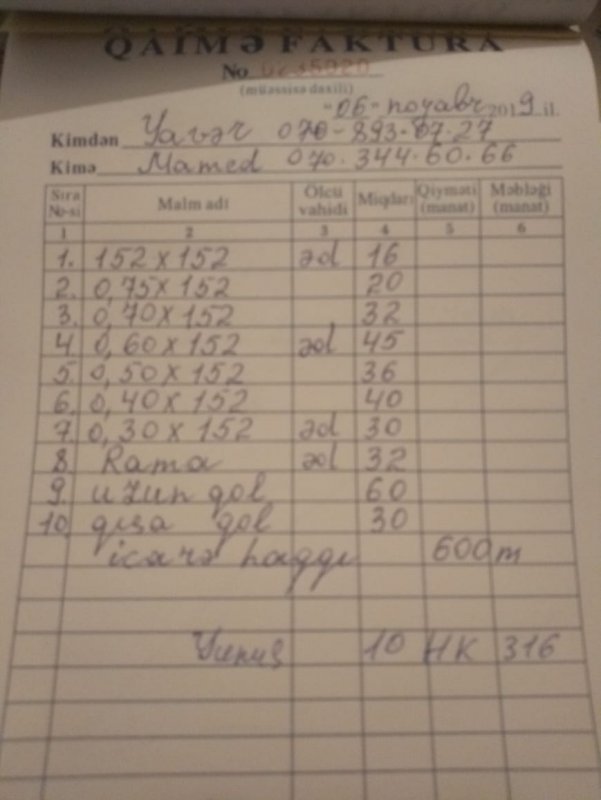 QAİMƏ FAKTURA
No 0235020
(müəssisə daxili)
"06" noyabr 2019 il.
Kimdən Yavər 070-893-07-27
Kimə Mamed 070.344.60.66
Sıra №-si Malın adı Ölçü vahidi Miqdarı Qiyməti (manat) Məbləği (manat)
1 2 3 4 5 6
1. 152 x 152 əd 16
2. 0,75 x 152 20
3. 0,70 x 152 32
4. 0,60 x 152 əd 45
5. 0,50 x 152 36
6. 0,40 x 152 40
7. 0,30 x 152 əd 30
8. Rama əd 32
9. uzun qol 60
10. qısa qol 30
icarə haqqı 600 m
Yunus 10 HK 316